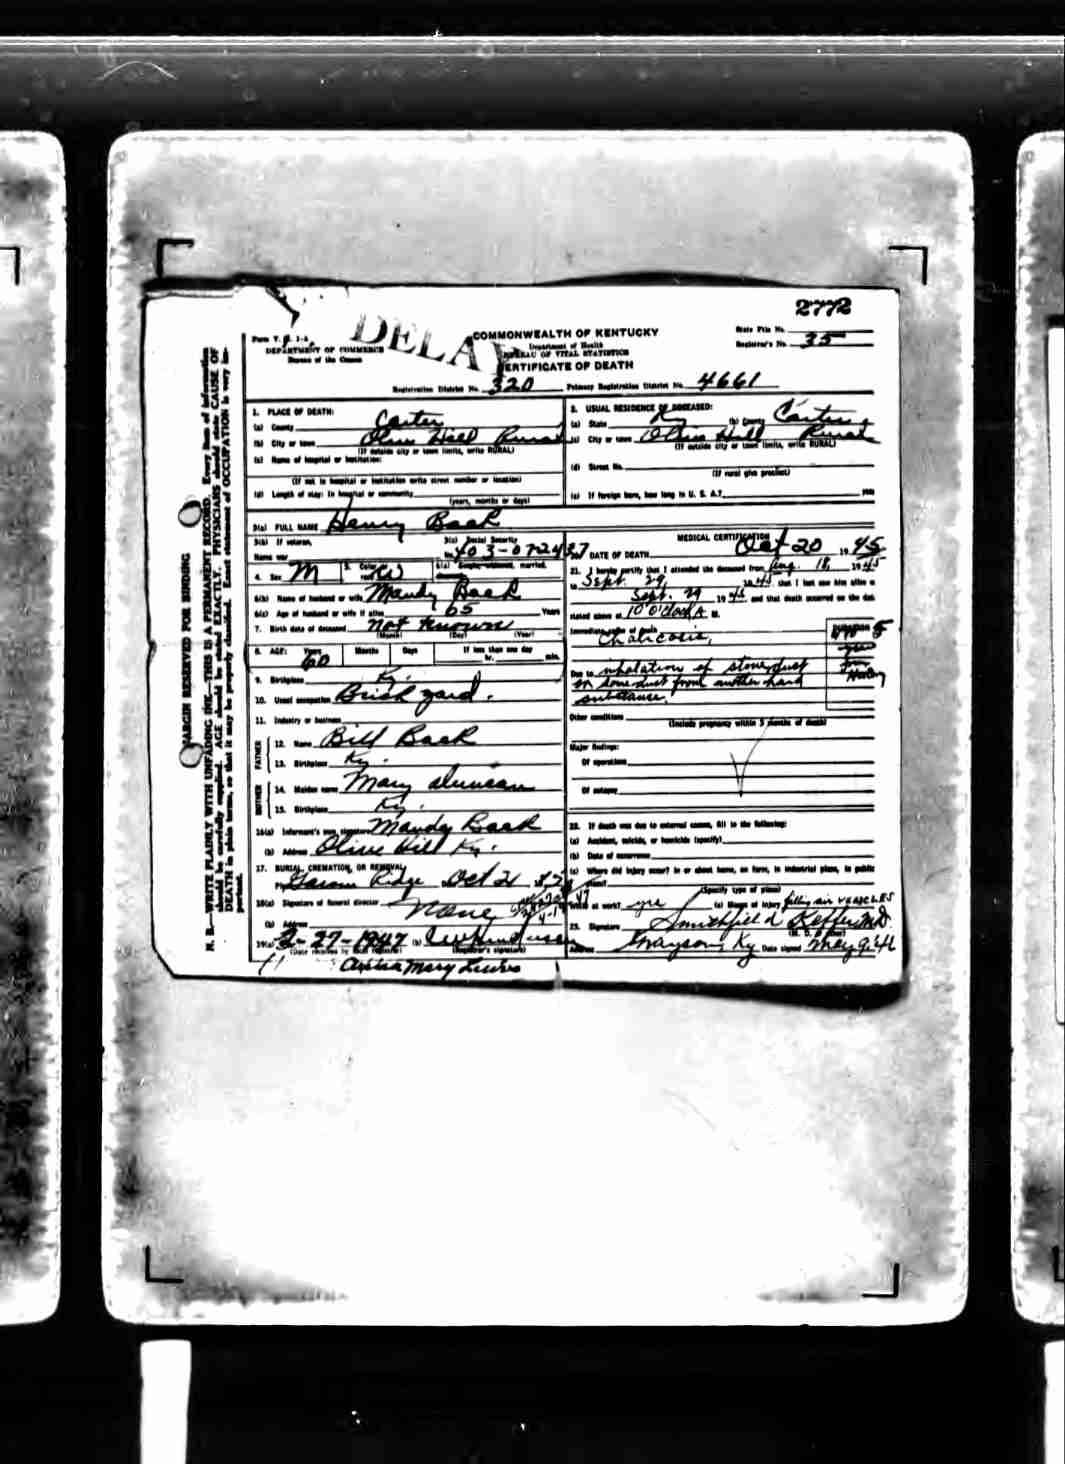 2772
DELAY
Form V. S. 1-A
DEPARTMENT OF COMMERCE
Bureau of the Census
COMMONWEALTH OF KENTUCKY
Department of Health
BUREAU OF VITAL STATISTICS
CERTIFICATE OF DEATH
State File No.
Registrar's No. 35
Registration District No. 320 Primary Registration District No. 4661
MARGIN RESERVED FOR BINDING
N. B.—WRITE PLAINLY WITH UNFADING INK—THIS IS A PERMANENT RECORD. Every item of information
should be carefully supplied. AGE should be stated EXACTLY. PHYSICIANS should state CAUSE OF
DEATH in plain terms, so that it may be properly classified. Exact statement of OCCUPATION is very im-
portant.
1. PLACE OF DEATH:
(a) County Carter
(b) City or town Olive Hill Rural
(If outside city or town limits, write RURAL)
(c) Name of hospital or institution:
(If not in hospital or institution write street number or location)
(d) Length of stay: In hospital or community
(years, months or days)
2. USUAL RESIDENCE OF DECEASED:
(a) State Ky (b) County Carter
(c) City or town Olive Hill Rural
(If outside city or town limits, write RURAL)
(d) Street No.
(If rural give precinct)
(e) If foreign born, how long in U. S. A.? years
3(a) FULL NAME Henry Back
3(b) If veteran,
Name war
3(c) Social Security
No. 403-072437
4. Sex M 5. Color or race W 6(a) Single, widowed, married,
divorced
6(b) Name of husband or wife Mandy Back
6(c) Age of husband or wife if alive 65 Years
7. Birth date of deceased not known
(Month) (Day) (Year)
8. AGE: Years Months Days If less than one day
60 hr. min.
9. Birthplace Ky.
10. Usual occupation Brick yard.
11. Industry or business
FATHER
12. Name Bill Back
13. Birthplace Ky.
MOTHER
14. Maiden name Mary
15. Birthplace Ky.
16(a) Informant's own signature Mandy Back
(b) Address Olive Hill Ky.
17. BURIAL, CREMATION, OR REMOVAL
Ridge Oct 21
18(a) Signature of funeral director None
(b) Address
19(a) 2-27-1947 (b)
(Date received by local registrar) (Registrar's signature)
Mary Lewis
MEDICAL CERTIFICATION
20. DATE OF DEATH Oct 20 1945
21. I hereby certify that I attended the deceased from Aug. 18, 1945
to Sept. 29, 1945 that I last saw him alive on
Sept. 29 1945 and that death occurred on the date
stated above at 10 O'Clock A M.
Immediate cause of death DURATION
Chalicosis,
Due to inhalation of stone dust
or some dust from another hard
substance.
Other conditions
(Include pregnancy within 3 months of death)
Major findings:
Of operations
Of autopsy
22. If death was due to external causes, fill in the following:
(a) Accident, suicide, or homicide (specify)
(b) Date of occurrence
(c) Where did injury occur? In or about home, on farm, in industrial place, in public
place?
(Specify type of place)
While at work? yes (e) Means of injury filling air VESICLES
23. Signature Smithfield Keffer M.D.
(M. D. or other)
Address Grayson Ky Date signed May 9, 46